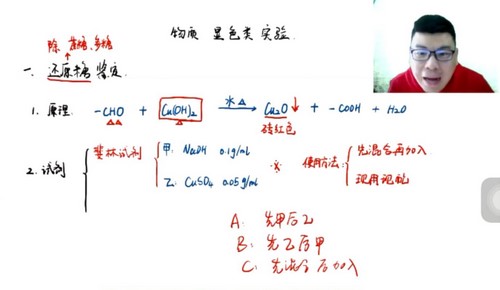 物质 显色类实验.
除 蔗糖、多糖
一. 还原糖 鉴定.
1. 原理: -CHO + Cu(OH)₂ 水△ → Cu₂O↓ + -COOH + H₂O
砖红色
2. 试剂 斐林试剂 甲: NaOH 0.1g/ml
乙: CuSO₄ 0.05g/ml
※ 使用方法: 先混合再加入
现用现配
A: 先甲后乙
B: 先乙后甲
C: 先混合后加入